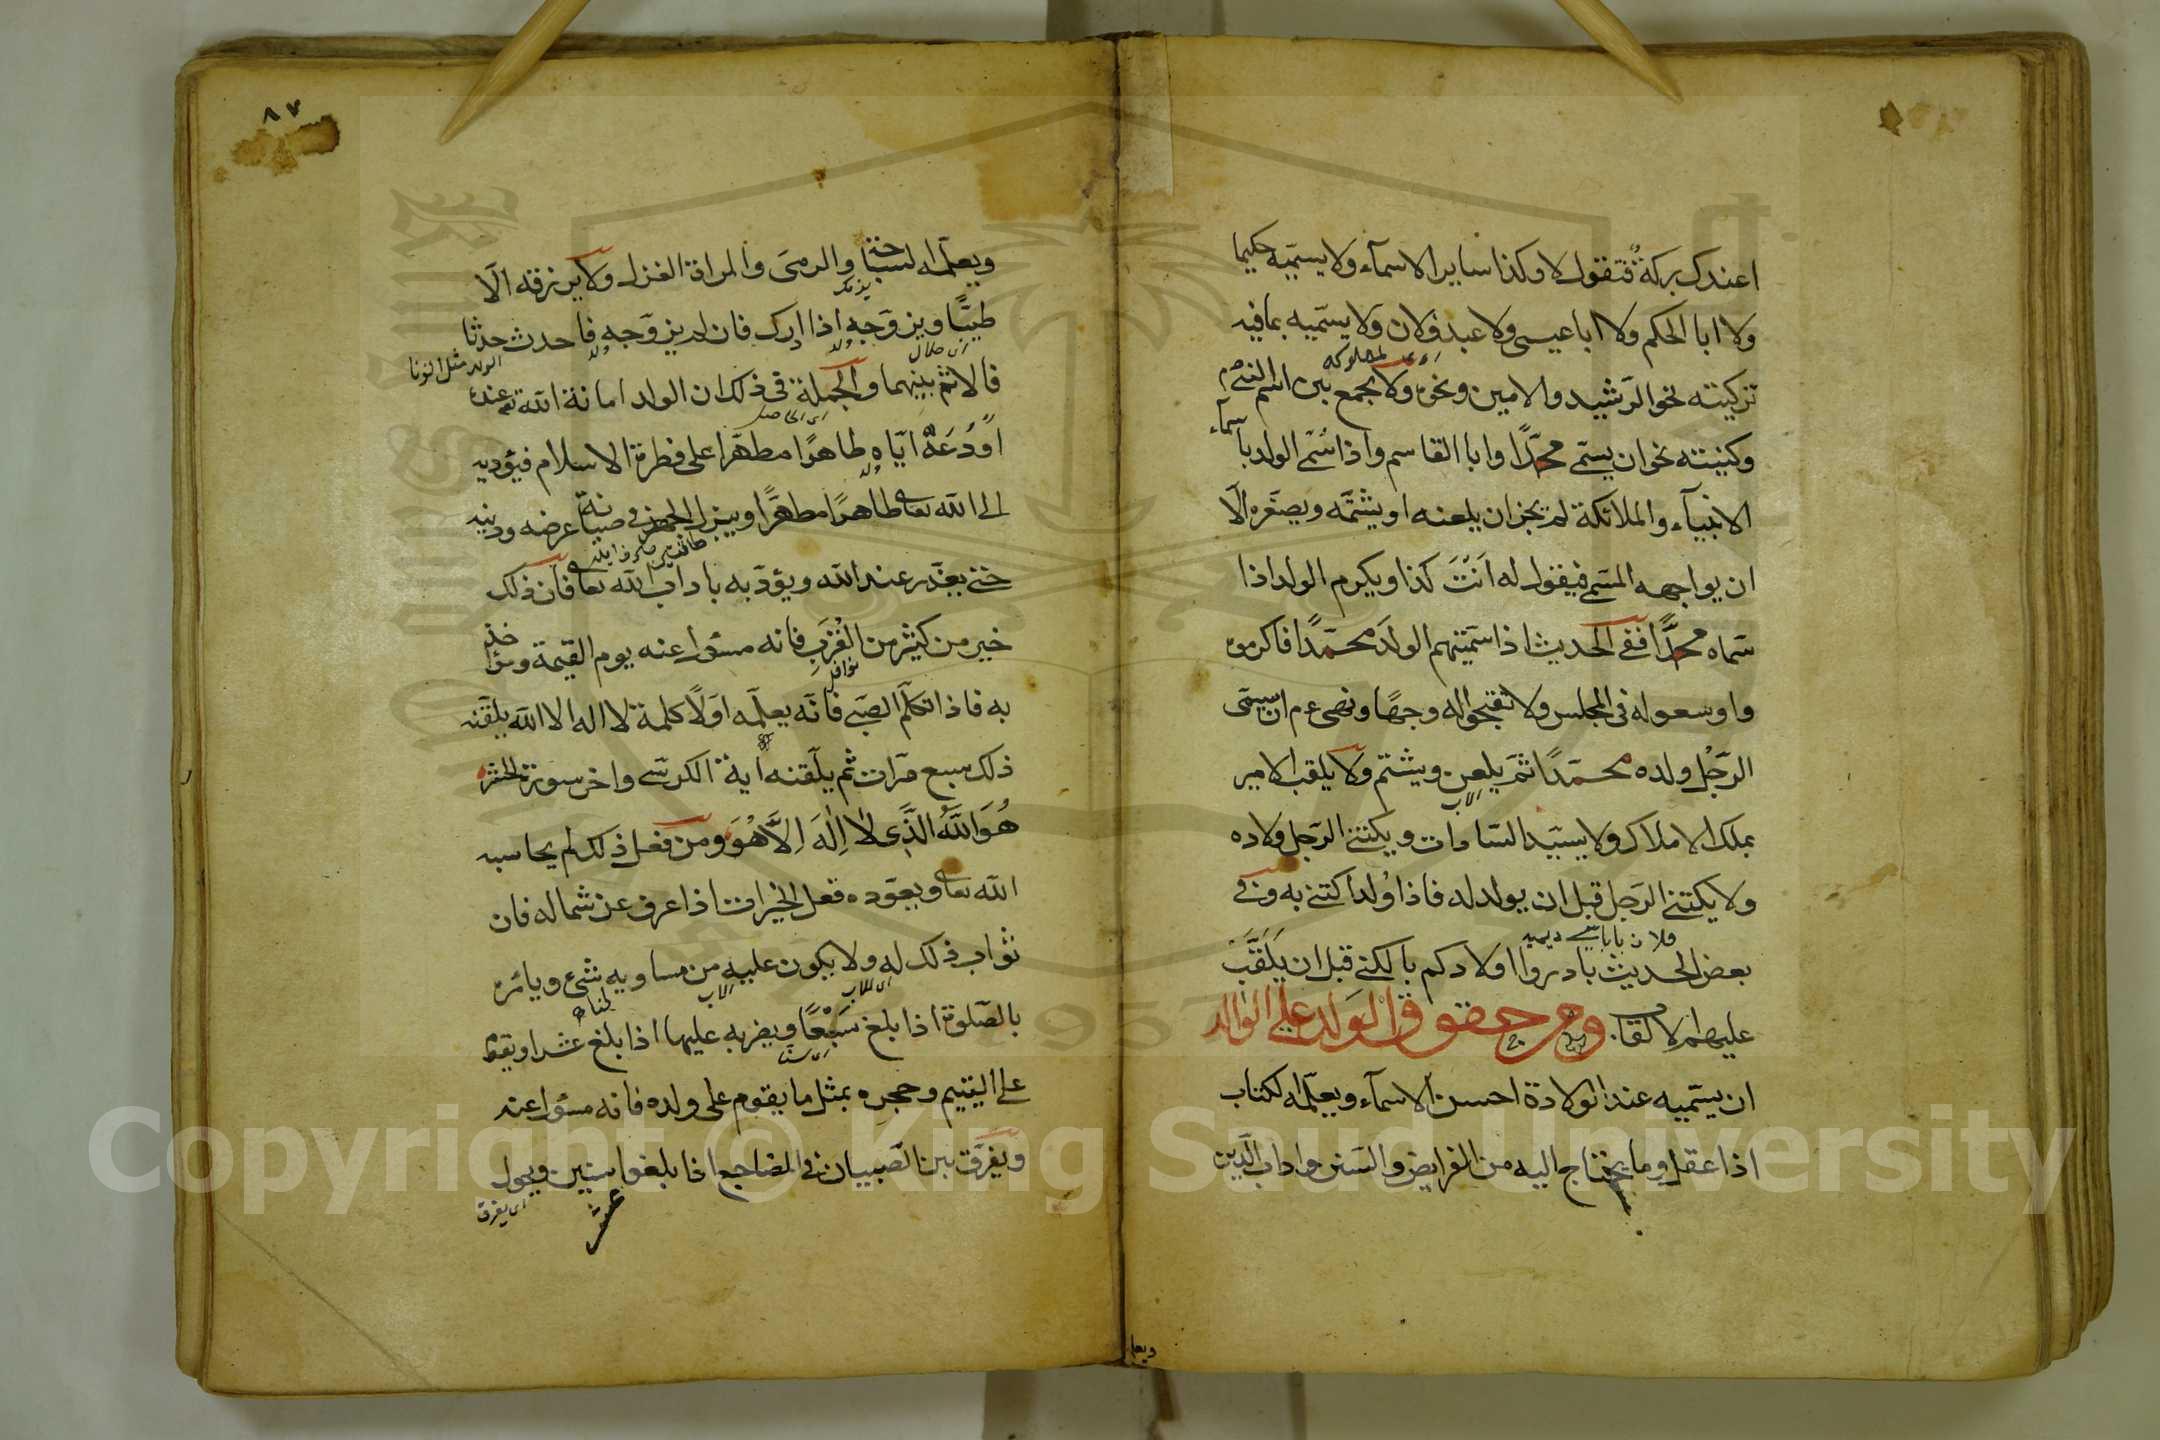 اعندك بركة فتقول لا وكذا ساير الاسمآء ولا يسمّيه حكيما
ولا ابا الحكم ولا ابا عيسى ولا عبد فلان ولا يسمّيه بما فيه
تزكيته نحو الرّشيد والامين ونحوه ولا يجمع بين اسم النبى
وكنيته نحو ان يسمّى محمّدًا وابا القاسم واذا سُمّى الولد بأسمآء
الانبيآء والملائكة لم يجز ان يلعنه او يشتمّه ويصغّره الّا
ان يواجهه المسمّى فيقول له اَنْتَ كذا ويكرم الولد اذا
سمّاه محمّدًا ففى الحديث اذا سمّيتهم الولدَ محمّدًا فاكرموه
واوسعوا له فى المجلس ولا تقبحوا له وجهًا ونهى ءم ان يسمّى
الرّجُل ولده محمّدًا ثمّ يلعن ويشتم ولا يلقب الامير
بملك الاملاك ولا بسيّد السّادات ويكتنى الرّجل ولاده
ولا يكتنى الرّجل قبل ان يولد له فاذا وُلد اكتنى به وفى
بعض الحديث بادروا اولادكم بالكنى قبل ان يَلقَّبَ
عليهم الالقاب ومن حقوق الولد على الوالد
ان يسمّيه عند الولادة احسن الاسمآء ويعلّمه الكتاب
اذا عقل وما يحتاج اليه من الفرايض والسّنن واداب الدّين
ويعلم
٨٧
ويعلّمه السباحة والرمىَ والمراة الغزل ولا يرزقه الّا
طيّبًا ويزوّجه اذا ادرك فان لم يزوّجه فاحدث حدثا
فالاثم بينهما والجملة فى ذلك ان الولد امانة الله تع عنده
اَوْدَعَهُ ايّاه طاهرًا مطهّرا على فطرة الاسلام فيؤديه
الى الله تعالى طاهرًا مطهّرًا ويبذل الجهد فى صيانة عرضه ودينه
حتى يعذر عند الله ويؤدّبه باداب الله تعالى فان ذلك
خير من كثير من القُرَبِ فانه مسؤل عنه يوم القيمة ومؤاخذ
به فاذا تكلّم الصّبى فانّه يعلّمه اوّلًا كلمة لا اله الا الله يلقّنه
ذلك سبع مرّات ثم يلّقنه آية الكرسّى واخر سورة الحشر
هُوَ اللّهُ الَّذِى لَا اِلٰهَ اِلَّا هُوَ ومن فعل ذلك لم يحاسبه
الله تعالى ويعوّده فعل الخيرات اذا عرف عن شماله فان
ثواب ذلك له ولا يكون عليه من مساويه شىء ويامره
بالصّلوة اذا بلغ سَبْعًا ويضربه عليها اذا بلغ عشرا ويقوم
على اليتيم وحجره بمثل ما يقوم على ولده فانه مسؤل عنه
ويفرّق بين الصّبيان فى المضاجع اذا بلغوا سنين ويحول
عشر
اى يفرق
Copyright © King Saud University
1957